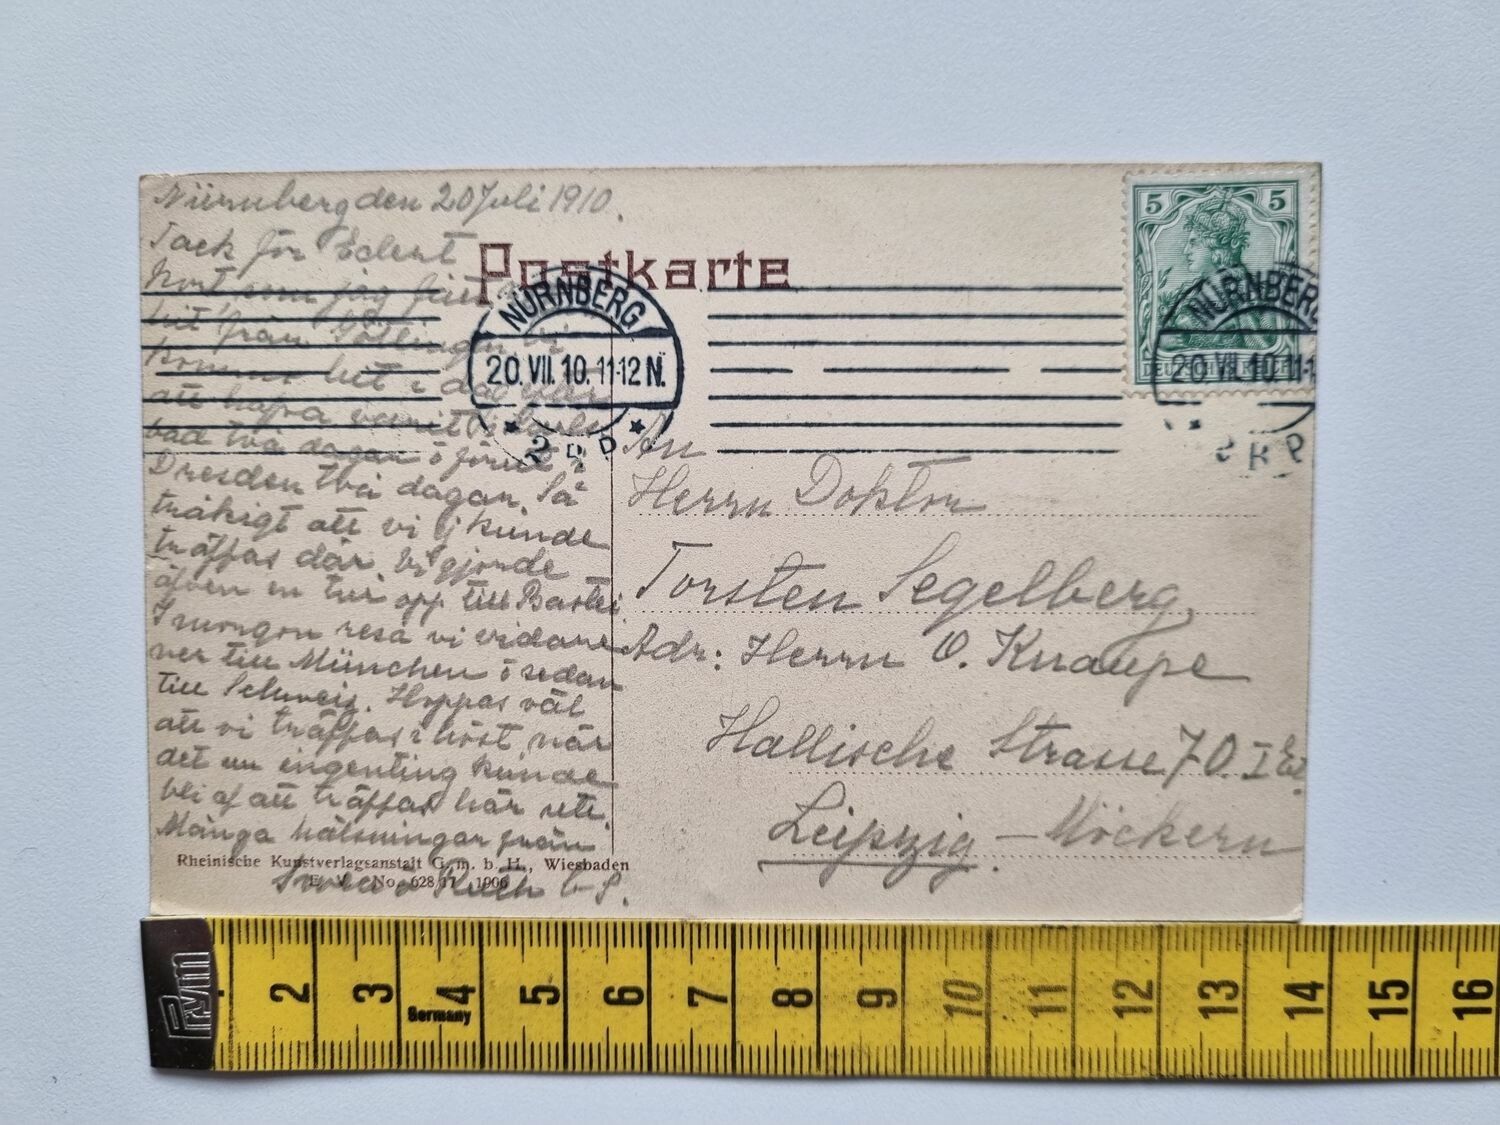 Nürnberg den 20 Juli 1910.
Tack för
kort som jag fick
hit från Göttingen vi
kommo hit i dag efter
att hafva varit i Karls
bad två dagar o förut i
Dresden två dagar. Så
tråkigt att vi ej kunde
träffas där. Vi gjorde
äfven en tur opp till Bastei.
I morgon resa vi vidare
ner till München o sedan
till Schweiz. Hoppas väl
att vi träffas i höst när
det nu ingenting kunde
bli af att träffas här ute.
Många hälsningar från
o Ruth b-S.
Postkarte
NÜRNBERG
20. VII. 10. 11-12 N.
* 2 *
5 5
DEUTSCHES REICH
NÜRNBERG
20. VII. 10. 11-1
An
Herrn Doktor
Torsten Segelberg,
Adr: Herrn O. Knaupe
Hallische Strasse 70. I Et.
Leipzig – Möckern.
Rheinische Kunstverlagsanstalt G. m. b. H., Wiesbaden
No. 628/17 1906
Prym
2 3 4 5 6 7 8 9 10 11 12 13 14 15 16
Germany